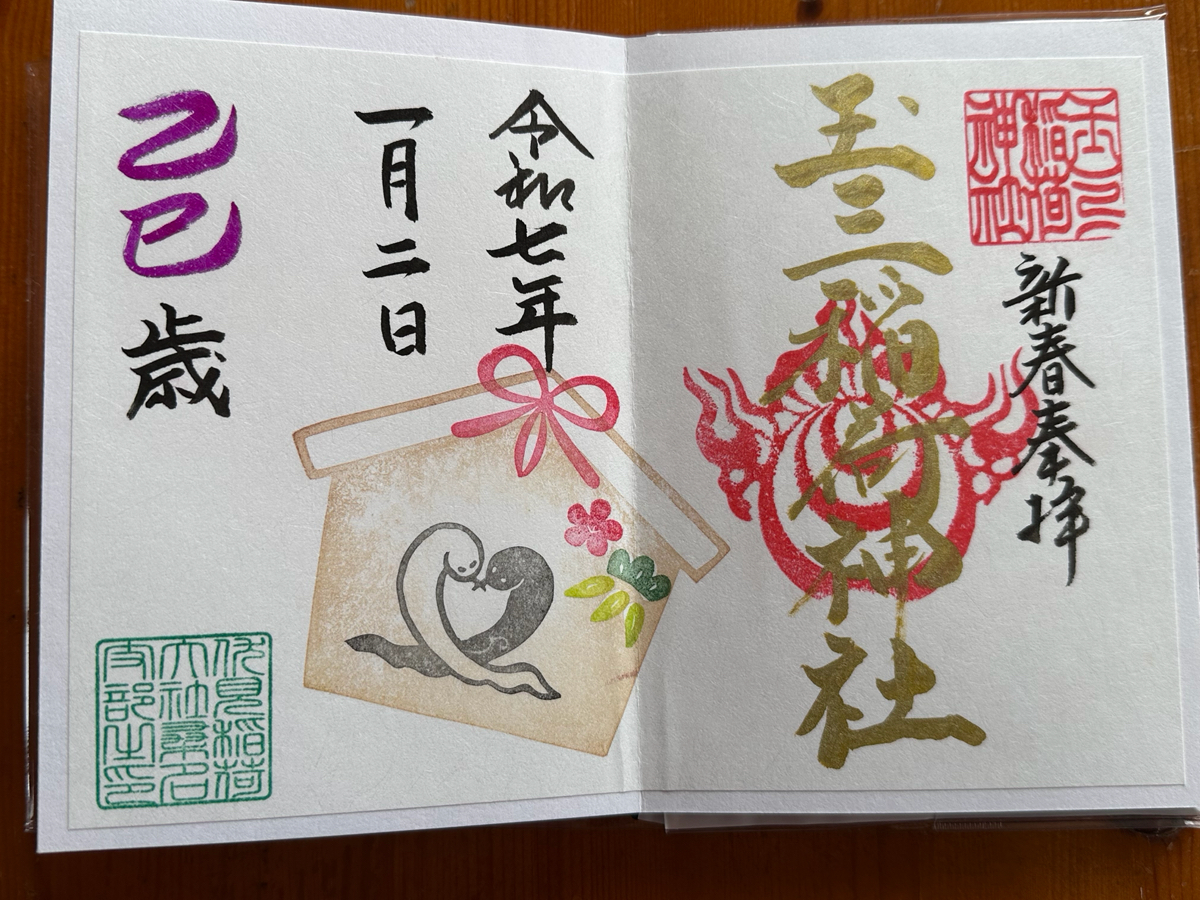 玉三稲荷神社
新春奉拝
玉三稲荷神社
令和七年
一月二日
乙巳歳
伏見稲荷
大社桑名
支部之印